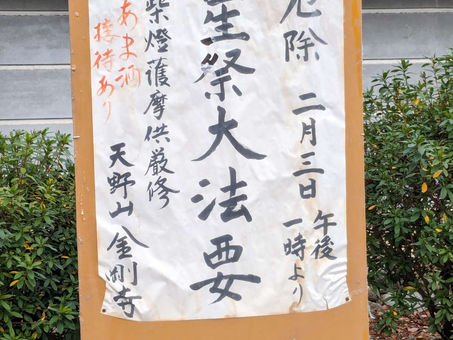 厄除 二月三日 午後
一時より
星祭大法要
柴燈護摩供厳修
天野山金剛寺
あま酒
接待あり